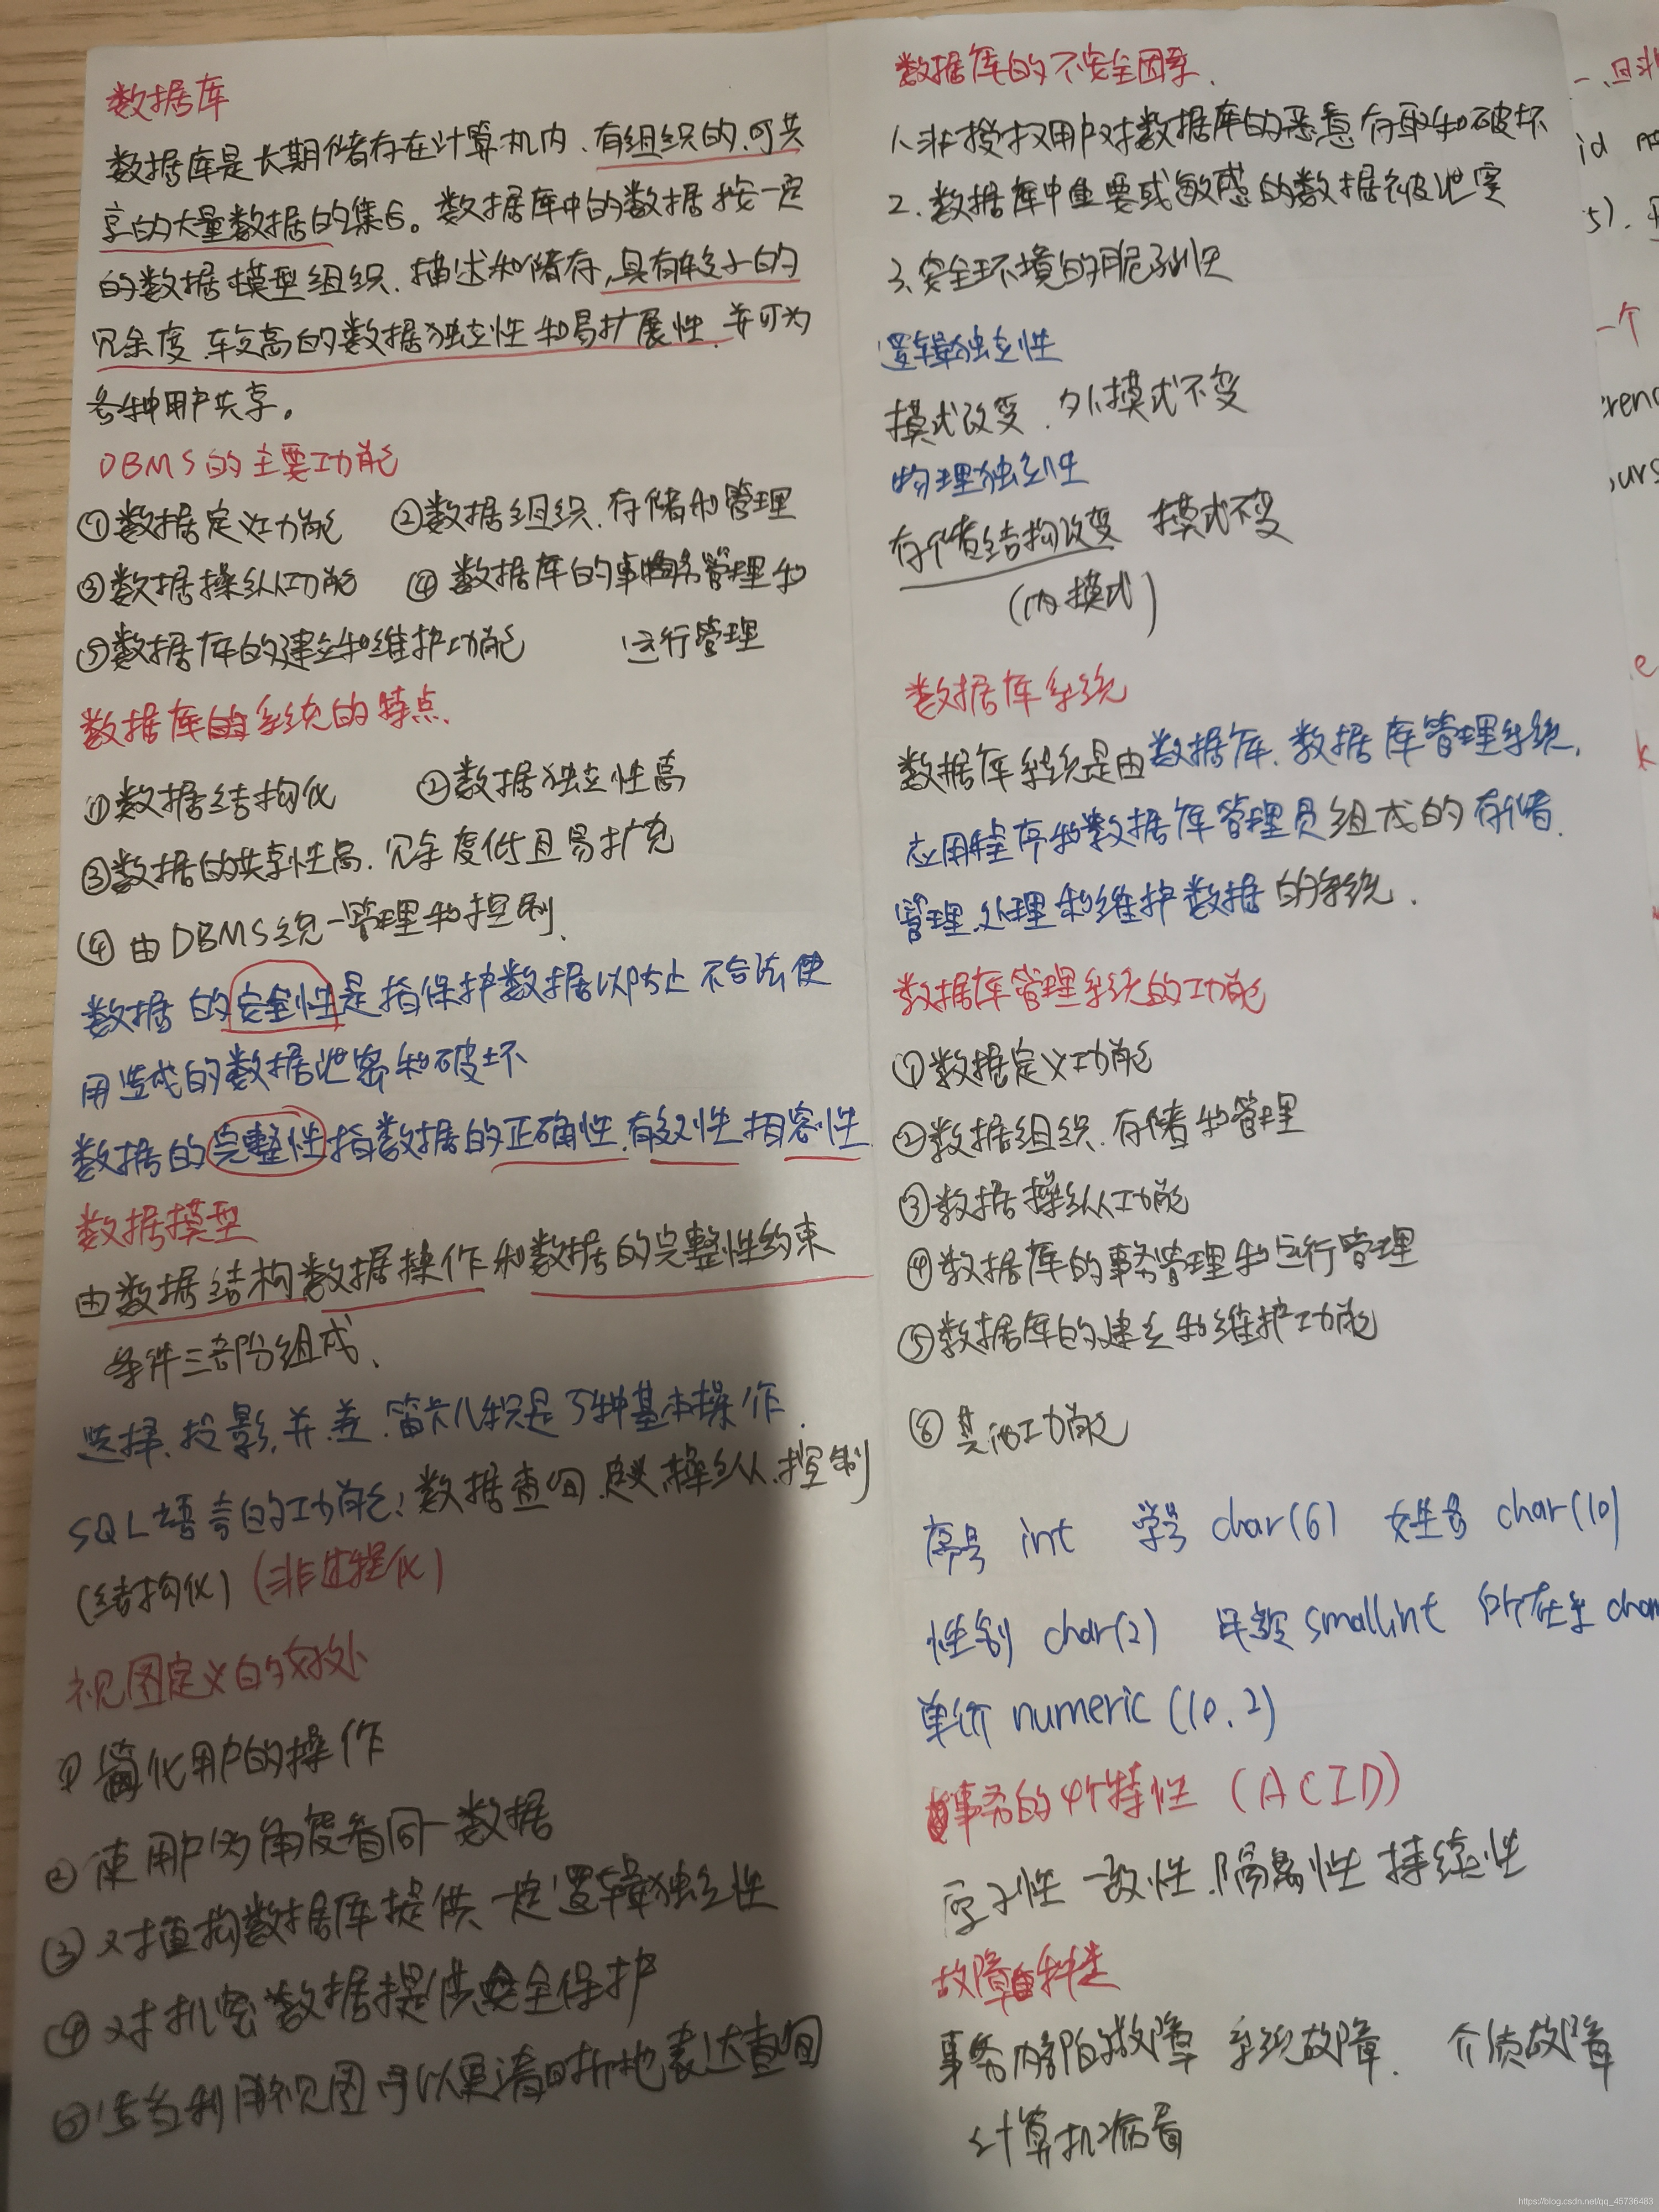 数据库
数据库是长期储存在计算机内、有组织的、可共
享的大量数据的集合。数据库中的数据按一定
的数据模型组织、描述和储存,具有较小的
冗余度、较高的数据独立性和易扩展性、并可为
各种用户共享。
DBMS的主要功能
①数据定义功能 ②数据组织、存储和管理
③数据操纵功能 ④数据库的事物务管理和
⑤数据库的建立和维护功能 运行管理
数据库的系统的特点、
①数据结构化 ②数据独立性高
③数据的共享性高、冗余度低且易扩充
④由DBMS统一管理和控制、
数据的安全性是指保护数据以防止不合法使
用造成的数据泄密和破坏
数据的完整性指数据的正确性、有效性、相容性
数据模型
由数据结构数据操作和数据的完整性约束
条件三部分组成、
选择、投影、并、差、笛卡儿积是5种基本操作、
SQL语言的功能:数据查询、定义、操纵、控制
(结构化)(非过程化)
视图定义的好处
①简化用户的操作
②使用户多角度看同一数据
③对重构数据库提供一定逻辑独立性
④对机密数据提供安全保护
⑤适当利用视图可以更清晰地表达查询
数据库的不安全因素、
1、非授权用户对数据库的恶意存取和破坏
2、数据库中重要或敏感的数据被泄露
3、安全环境的脆弱性
逻辑独立性
模式改变、外模式不变
物理独立性
存储结构改变 模式不变
(内模式)
数据库系统
数据库系统是由数据库、数据库管理系统、
应用程序和数据库管理员组成的存储、
管理、处理和维护数据的系统、
数据库管理系统的功能
①数据定义功能
②数据组织、存储和管理
③数据操纵功能
④数据库的事务管理和运行管理
⑤数据库的建立和维护功能
⑥其他功能
序号 int 学号 char(6) 姓名 char(10)
性别 char(2) 年龄 smallint 所在系 cha
单价 numeric(10,2)
事务的4个特性(ACID)
原子性 一致性、隔离性 持续性
故障的种类
事务内部的故障 系统故障、 介质故障
计算机病毒
id
5)、
一个
e
k
https://blog.csdn.net/qq_45736483